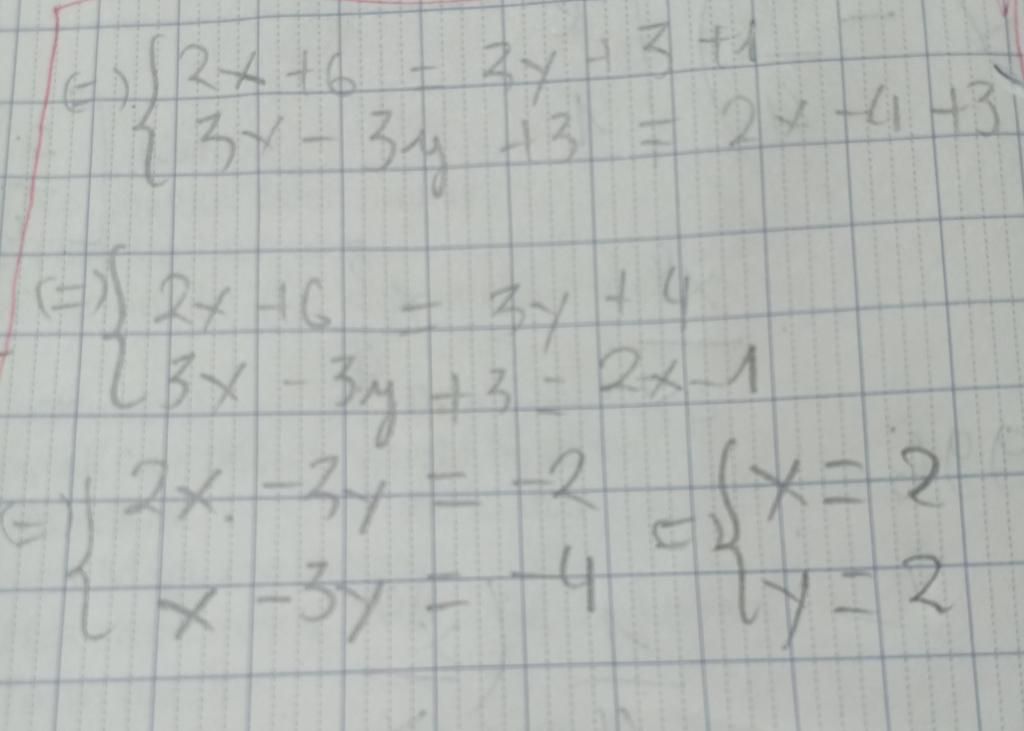 (=) { 2x + 6 = 3y + 3 + 1
3x - 3y + 3 = 2x - 4 + 3
(=) { 2x + 6 = 3y + 4
3x - 3y + 3 = 2x - 1
(=) { 2x - 3y = -2
x - 3y = -4
(=) { x = 2
y = 2